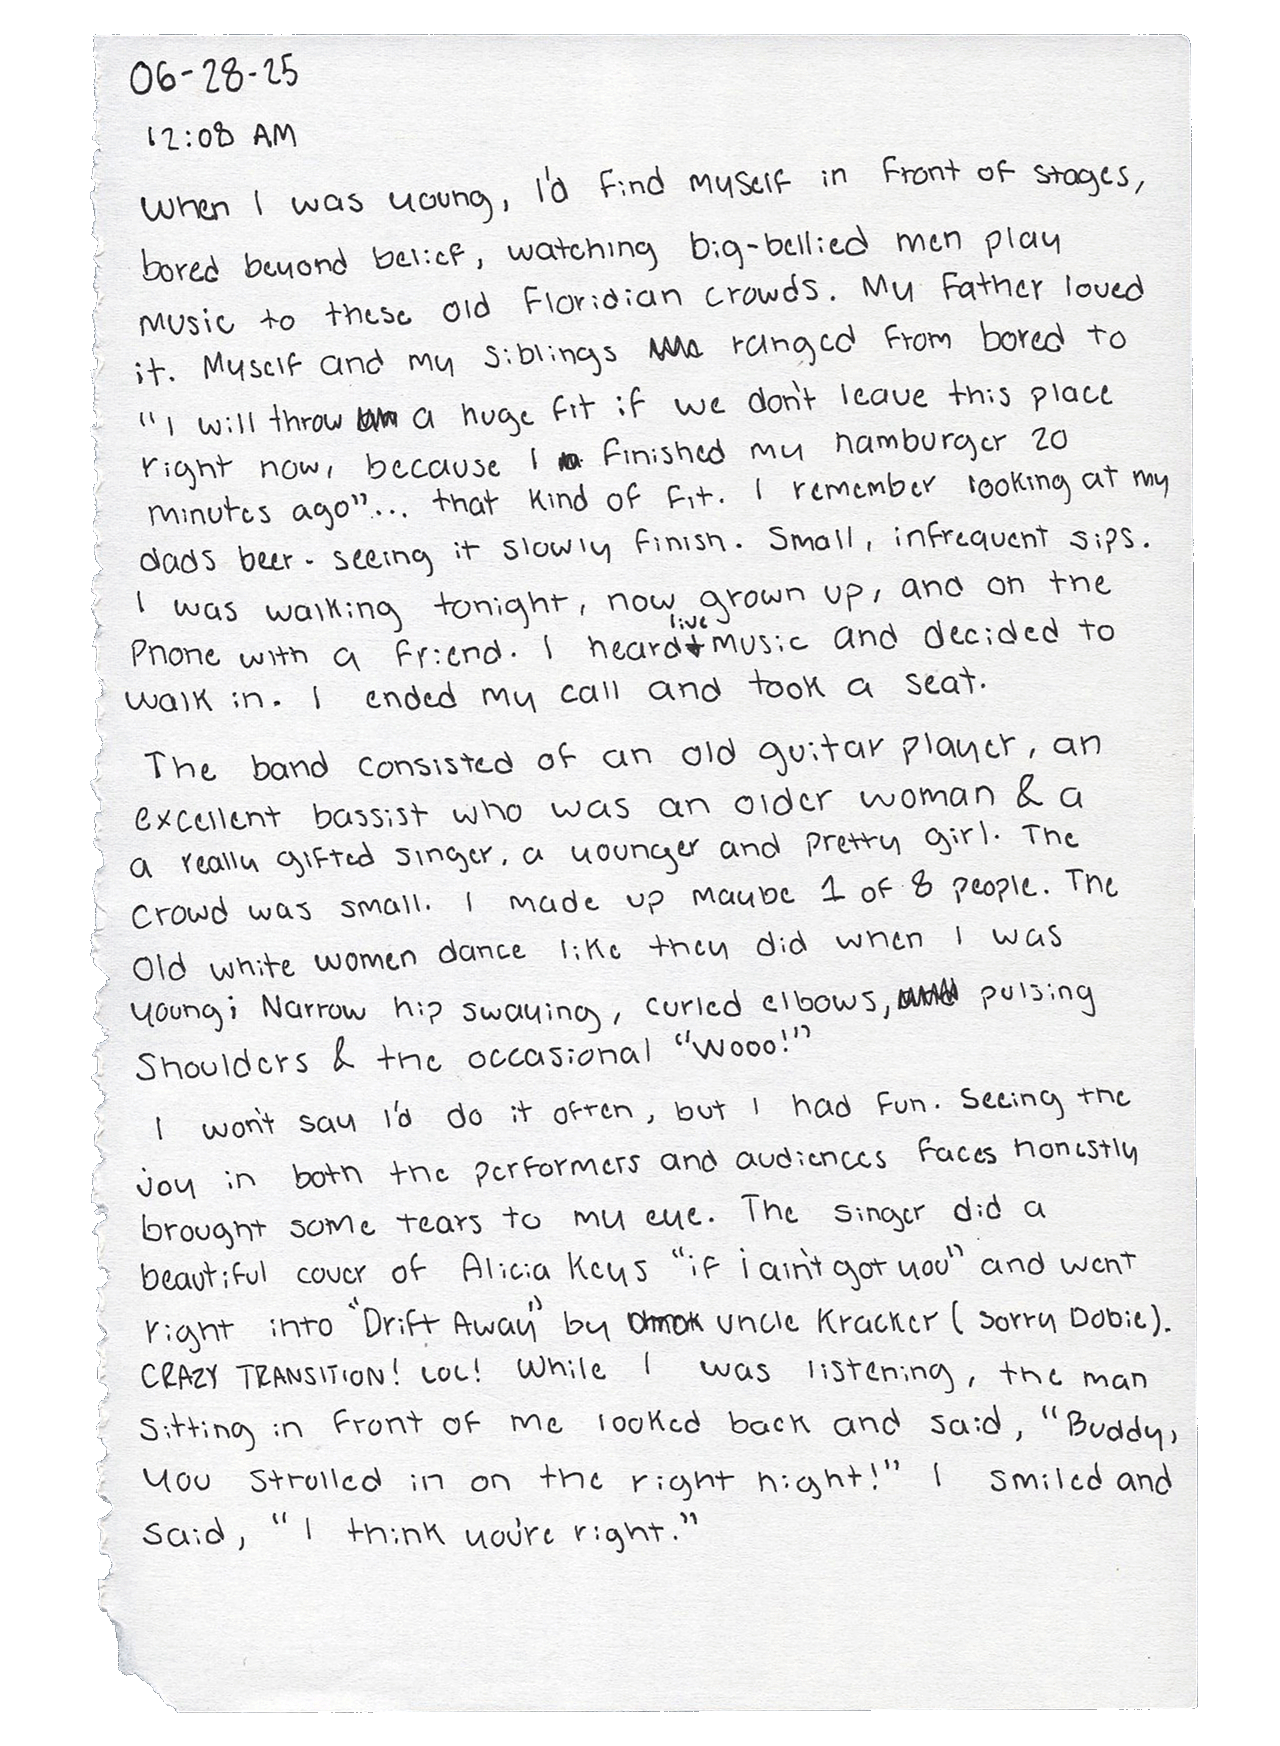 06-28-25
12:08 AM
When I was young, I'd find myself in front of stages,
bored beyond belief, watching big-bellied men play
music to these old Floridian crowds. My father loved
it. Myself and my siblings ranged from bored to
"I will throw a huge fit if we don't leave this place
right now, because I finished my hamburger 20
minutes ago"... that kind of fit. I remember looking at my
dads beer. seeing it slowly finish. Small, infrequent sips.
I was walking tonight, now grown up, and on the
Phone with a friend. I heard live music and decided to
walk in. I ended my call and took a seat.
The band consisted of an old guitar player, an
excellent bassist who was an older woman & a
a really gifted singer, a younger and pretty girl. The
crowd was small. I made up maybe 1 of 8 people. The
Old white women dance like they did when I was
young; Narrow hip swaying, curled elbows, pulsing
Shoulders & the occasional "Wooo!"
I won't say I'd do it often, but I had fun. Seeing the
joy in both the performers and audiences faces honestly
brought some tears to my eye. The singer did a
beautiful cover of Alicia Keys "if i ain't got you" and went
right into "Drift Away" by uncle Kracker (sorry Dobie).
CRAZY TRANSITION! LOL! While I was listening, the man
sitting in front of me looked back and said, "Buddy,
you strolled in on the right night!" I smiled and
said, "I think you're right."